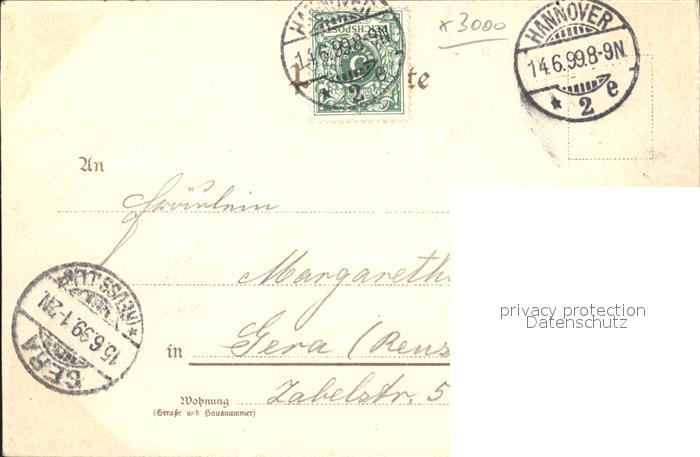 HANNOVER
14.6.99.8-9N.
* 2 e
REICHSPOST
× 3000
HANNOVER
14.6.99.8-9N.
* 2 e
te
An
Fräulein
Margareth
GERA
15.6.99.1-2N.
in Gera (Reus
Wohnung Zabelstr. 5
(Straße und Hausnummer)
privacy protection
Datenschutz